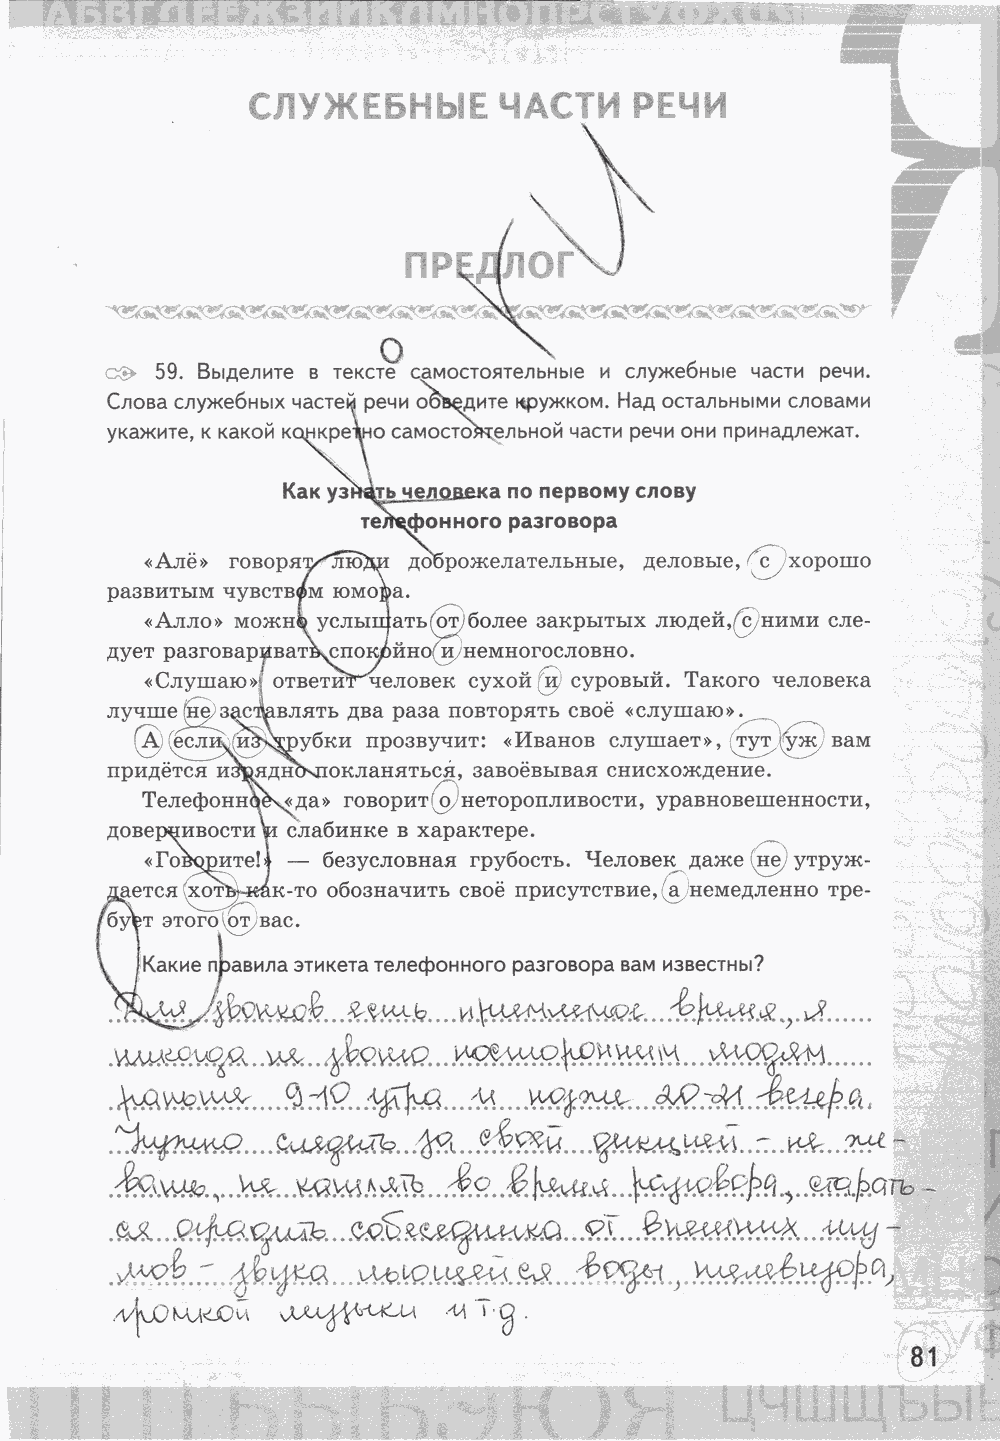 АБВГДЕЁЖЗИЙКЛМНОПРСТУФХЦЧ
СЛУЖЕБНЫЕ ЧАСТИ РЕЧИ
ПРЕДЛОГ
59. Выделите в тексте самостоятельные и служебные части речи.
Слова служебных частей речи обведите кружком. Над остальными словами
укажите, к какой конкретно самостоятельной части речи они принадлежат.
Как узнать человека по первому слову
телефонного разговора
«Алё» говорят люди доброжелательные, деловые, с хорошо
развитым чувством юмора.
«Алло» можно услышать от более закрытых людей, с ними сле-
дует разговаривать спокойно и немногословно.
«Слушаю» ответит человек сухой и суровый. Такого человека
лучше не заставлять два раза повторять своё «слушаю».
А если из трубки прозвучит: «Иванов слушает», тут уж вам
придётся изрядно покланяться, завоёвывая снисхождение.
Телефонное «да» говорит о неторопливости, уравновешенности,
доверчивости и слабинке в характере.
«Говорите!» — безусловная грубость. Человек даже не утруж-
дается хоть как-то обозначить своё присутствие, а немедленно тре-
бует этого от вас.
Какие правила этикета телефонного разговора вам известны?
Для звонков есть приемлемое время, я
никогда не звоню посторонним людям
раньше 9-10 утра и позже 20-21 вечера.
Нужно следить за своей дикцией - не же-
вать, не кашлять во время разговора, старать-
ся оградить собеседника от внешних шу-
мов - звука льющейся воды, телевизора,
громкой музыки и т.д.
81